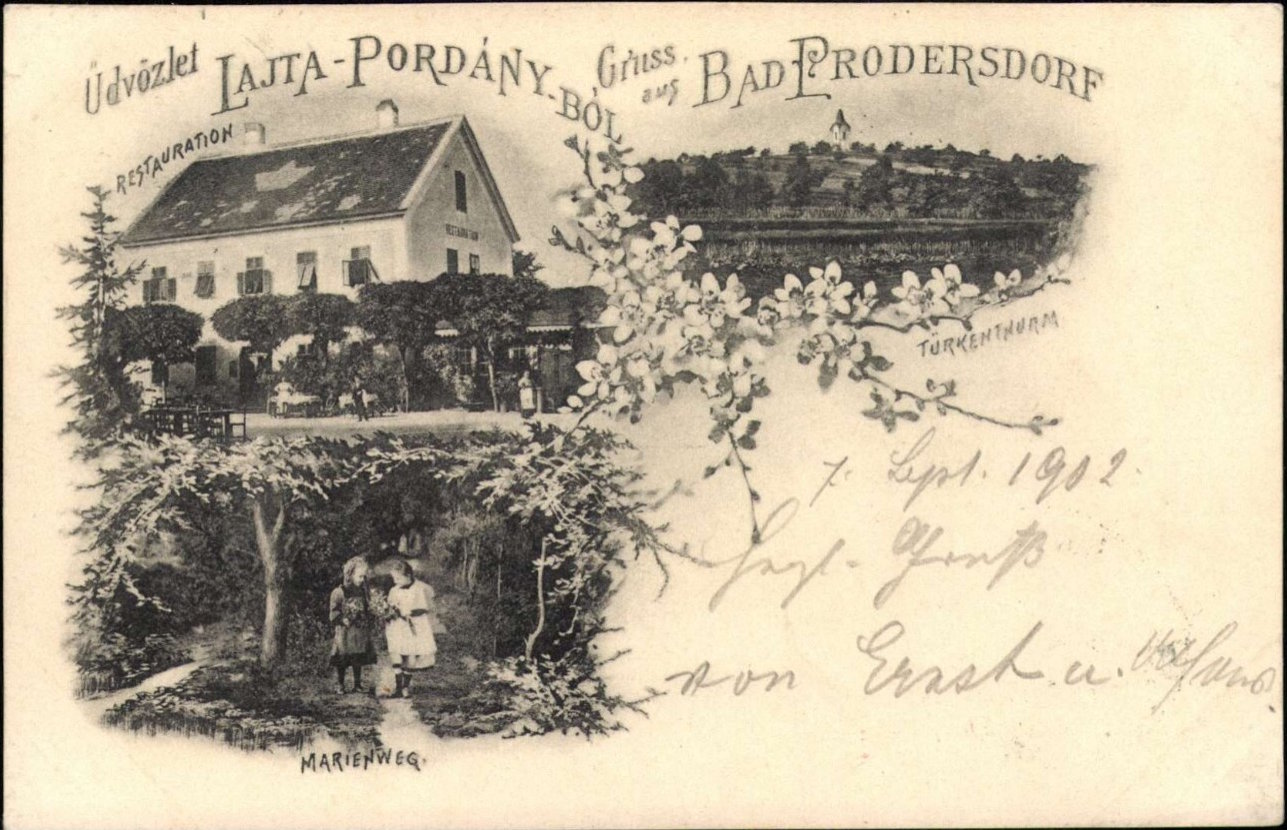 Üdvözlet LAJTA-PORDÁNY-BÓL
Gruss aus BAD PRODERSDORF
RESTAURATION
RESTAURATION
TÜRKENTHURM
7. Sept. 1902.
Hrzl. Gruß
von Ernst u.
MARIENWEG.